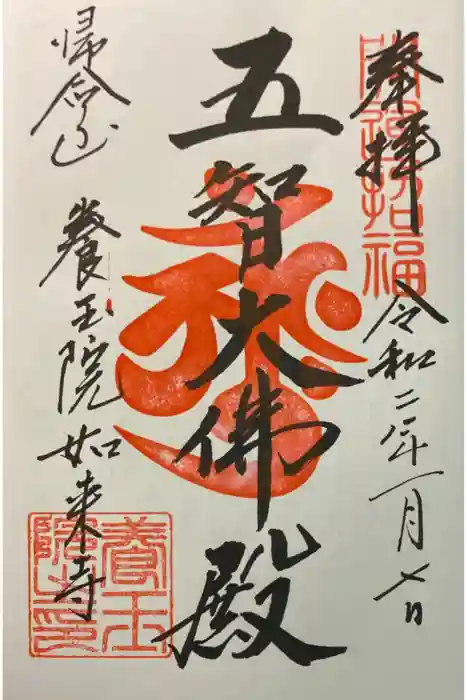 奉拝
開運招福
令和二年一月七日
五智大佛殿
帰命山
養玉院如来寺
養玉院印